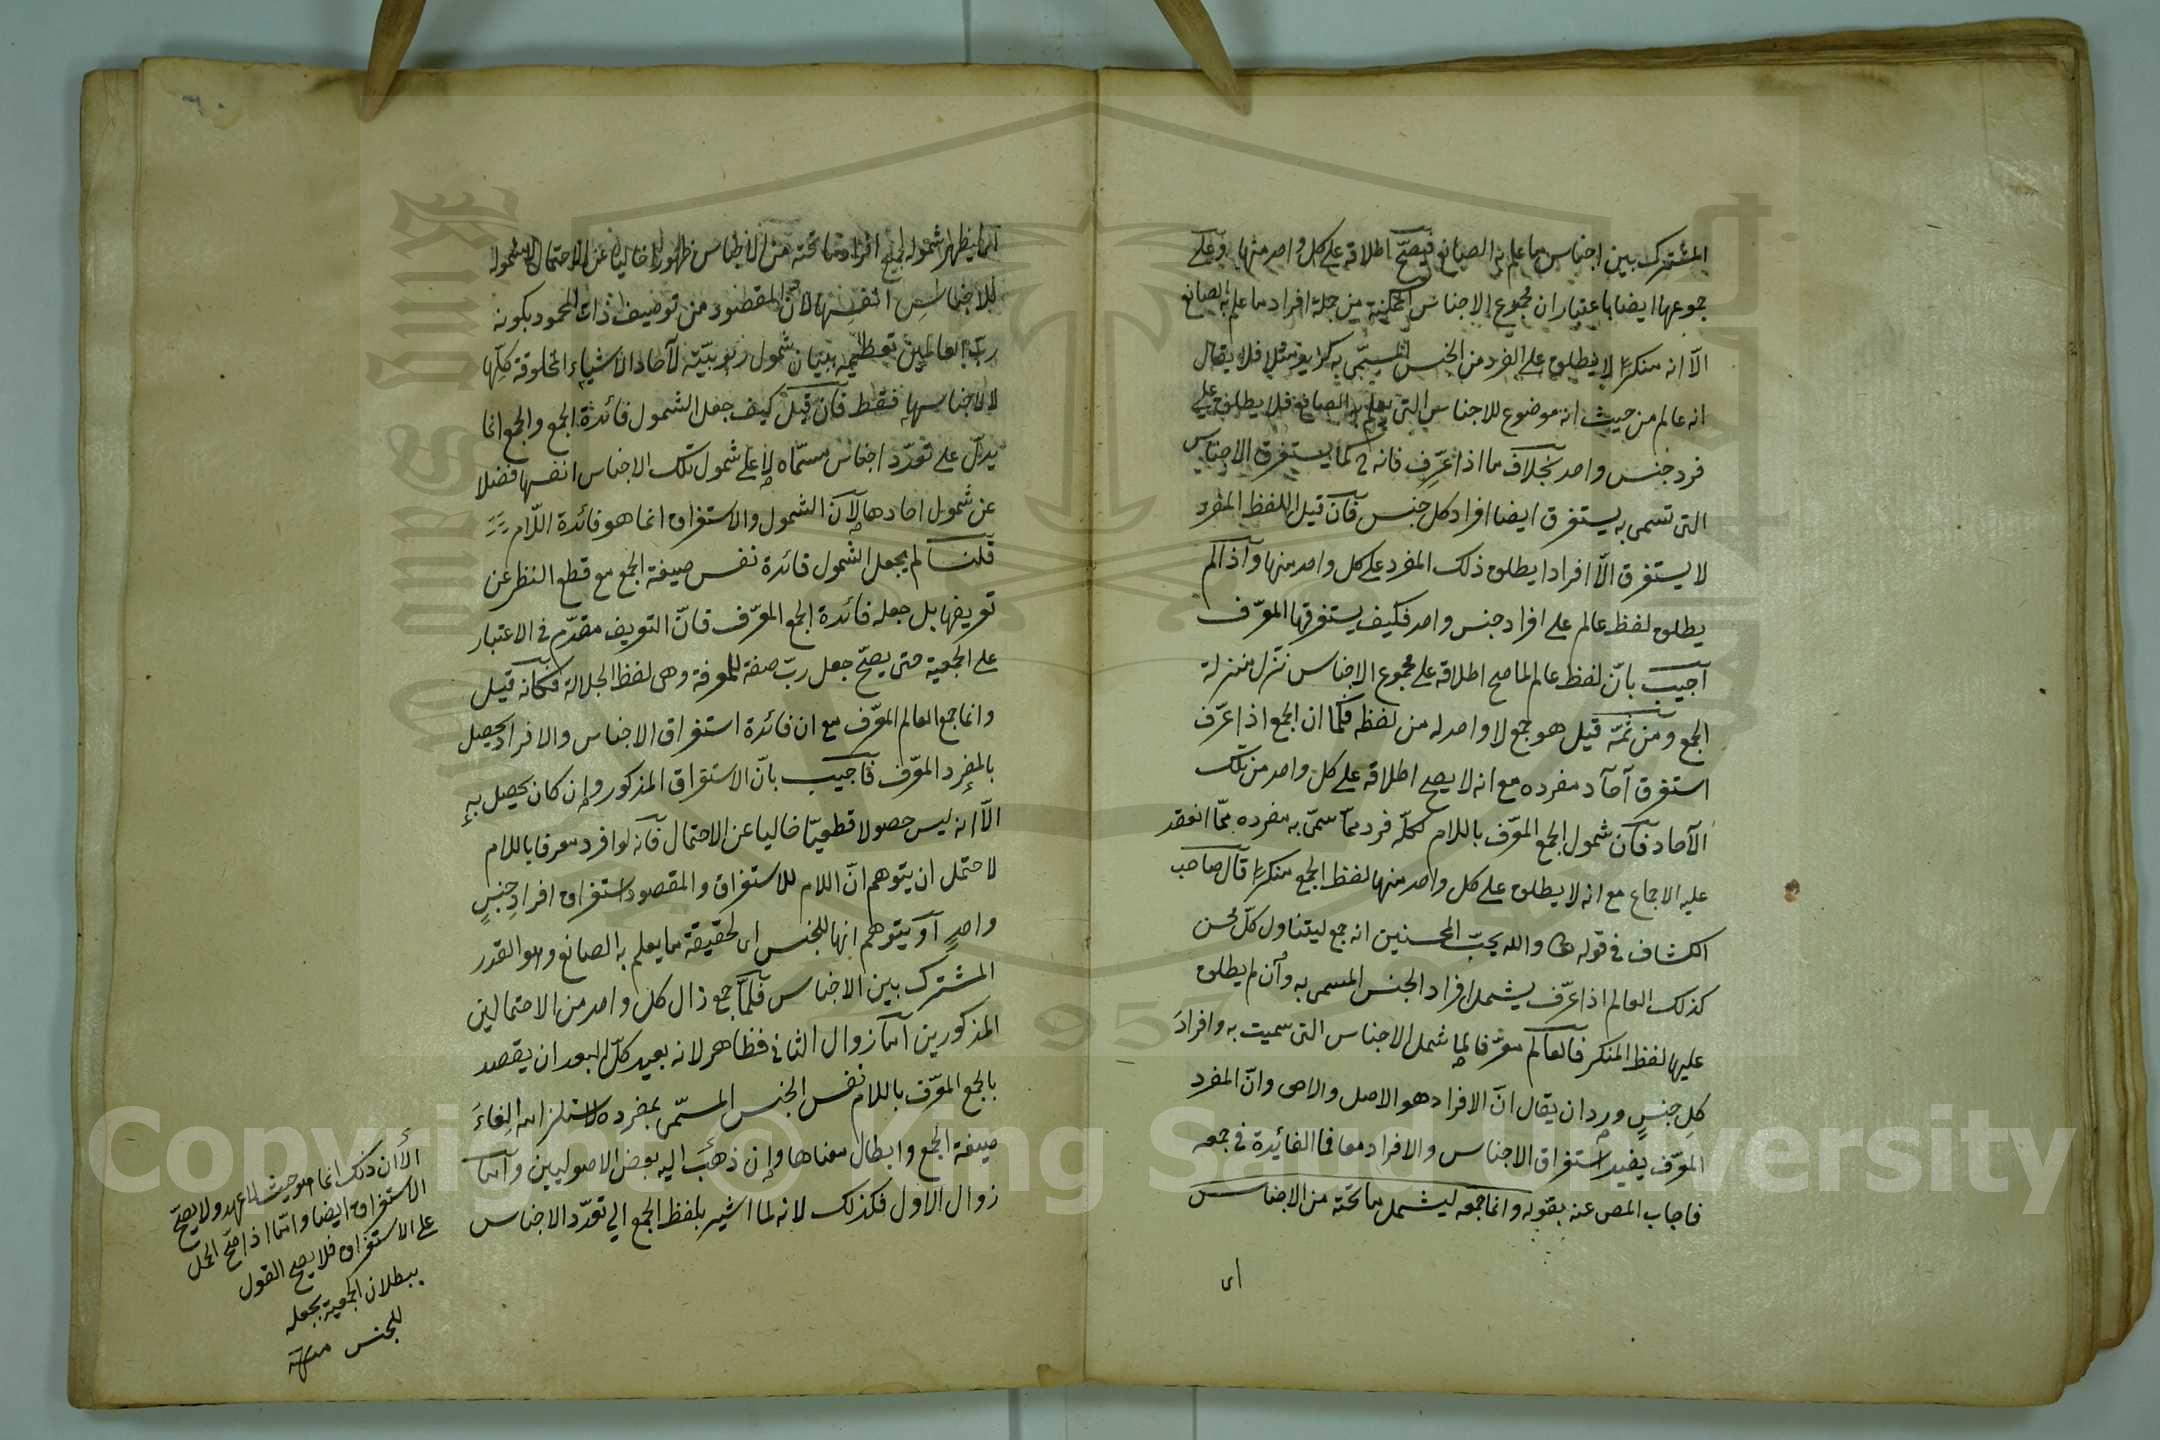 المشترك بين اجناس ما علم به الصانع فيصحّ اطلاقه على كل واحد منها وعلى
مجموعها ايضا باعتبار ان مجموع الاجناس الممكنة من جملة افراد ما علم به الصانع
الّا انه منكرًا لا يطلق على الفرد من الجنس المسمّى به كزيد مثلا فلا يقال
انه عالم من حيث انه موضوع للاجناس التى يعلم بها الصانع فلا يطلق على
فرد جنس واحد بخلاف ما اذا عرّف فانه ح كما يستغرق الاجناس
التى تسمى به يستغرق ايضا افراد كل جنس فان قيل اللفظ المفرد
لا يستغرق الّا افرادا يطلق ذلك المفرد على كل واحد منها واذا لم
يطلق لفظ عالم على افراد جنس واحد فكيف يستغرقها المعرّف
اجيب بانّ لفظ عالم لما صح اطلاقه على مجموع الاجناس نزل منزلة
الجمع ومن ثمّه قيل هو جمع لا واحد له من لفظه فكما ان الجمع اذا عرّف
استغرق آحاد مفرده مع انه لا يصح اطلاقه على كل واحد من تلك
الآحاد فان شمول الجمع المعرّف باللام لكلّ فرد ممّا سمّى به مفرده ممّا انعقد
عليه الاجماع مع انه لا يطلق على كل واحد منها لفظ الجمع منكرًا قال صاحب
الكشاف فى قوله تعا والله يحبّ المحسنين انه جمع ليتناول كلّ محسن
كذلك العالم اذا عرّف يشمل افراد الجنس المسمى به وان لم يطلق
عليها لفظ المنكر فالعالم معرّفا لما شمل الاجناس التى سميت به وافرادَ
كلِ جنسٍ ورد ان يقال انّ الافراد هو الاصل والاحق وانّ المفرد
المعرّف يفيد استغراق الاجناس والافراد معا فما الفائدة فى جمعه
فاجاب المص عنه بقوله وانما جمعه ليشمل ما تحته من الاجناس
اى
اى ليظهر شموله لجميع افراد ما تحته من الاجناس ظهورا خاليا عن الاحتمال لا شموله
للاجناسِ انفسِها لانّ المقصود من توصيف ذات المحمود بكونه
ربّ العالمين تعظيمه ببيان شمول ربوبيّته لآحاد الاشياء المخلوقة كلِّها
لا لاجناسها فقط فان قيل كيف جعل الشمول فائدة الجمع والجمع انما
يدلّ على تعدّد اجناس مسمّاه لا على شمول تلك الاجناس انفسها فضلا
عن شمول احادها لانّ الشمول والاستغراق انما هو فائدة اللّام
قلنا لم يجعل الشمول فائدة نفس صيغة الجمع مع قطع النظر عن
تعريفها بل جعله فائدة الجمع المعرّف فانّ التعريف مقدّم فى الاعتبار
على الجمعية حتى يصحّ جعل ربّ صفة للمعرفة وهى لفظ الجلالة فكانه قيل
وانما جمع العالم المعرّف مع ان فائدة استغراق الاجناس والافراد يحصل
بالمفرد المعرّف فاجيب بانّ الاستغراق المذكور وإن كان يحصل به
الّا انه ليس حصولا قطعيّا خاليا عن الاحتمال فانه لو افرد معرفا باللام
لاحتمل ان يتوهم انّ اللام للاستغراق والمقصود استغراق افرادِ جنسٍ
واحدٍ او يتوهم انها للجنس اى لحقيقة ما يعلم به الصانع وهو القدر
المشترك بين الاجناس فلمّا جمع زال كل واحد من الاحتمالين
المذكورين امّا زوال الثانى فظاهر لانه بعيد كلّ البعد ان يقصد
بالجمع المعرّف باللام نفس الجنس المسمّى بمفرده لاستلزامه الغاءَ
صيغة الجمع وابطال معناها وإن ذهَبَ اليه بعض الاصوليين وامّا
زوال الاول فكذلك لانه لما اشير بلفظ الجمع الى تعدّد الاجناس
الّا أن ذلك انما هو حيث لا عهد ولا يصحّ
الاستغراق ايضا وامّا اذا صحّ الحمل
على الاستغراق فلا يصح القول
ببطلان الجمعية بجعله
للجنس منه
Copyright © King Saud University
1957